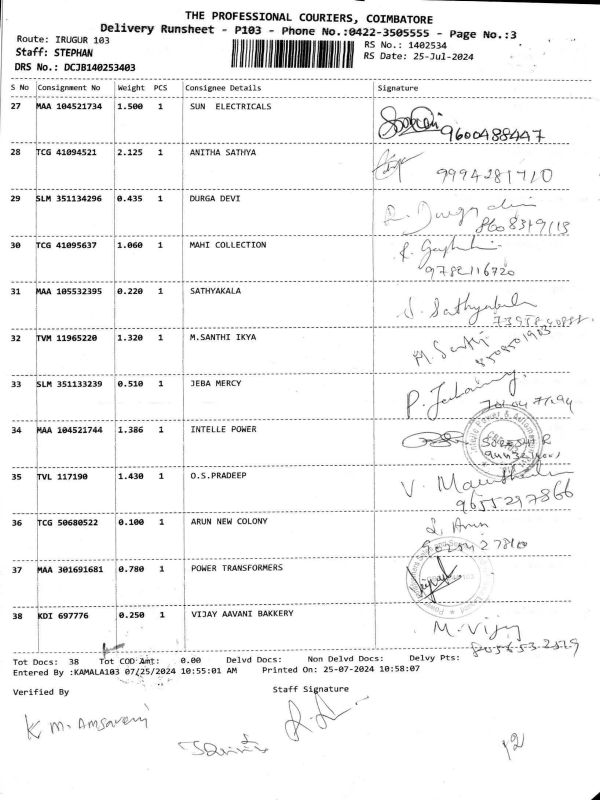 THE PROFESSIONAL COURIERS, COIMBATORE
Delivery Runsheet - P103 - Phone No.:0422-3505555 - Page No.:3
Route: IRUGUR 103
RS No.: 1402534
Staff: STEPHAN
RS Date: 25-Jul-2024
DRS No.: DCJB140253403
S No Consignment No Weight PCS Consignee Details Signature
27 MAA 104521734 1.500 1 SUN ELECTRICALS
9600488447
28 TCG 41094521 2.125 1 ANITHA SATHYA
9994281710
29 SLM 351134296 0.435 1 DURGA DEVI
30 TCG 41095637 1.060 1 MAHI COLLECTION
9782116720
31 MAA 105532395 0.220 1 SATHYAKALA
32 TVM 11965220 1.320 1 M.SANTHI IKYA
33 SLM 351133239 0.510 1 JEBA MERCY
34 MAA 104521744 1.386 1 INTELLE POWER
35 TVL 117190 1.430 1 O.S.PRADEEP
9655297866
36 TCG 50680522 0.100 1 ARUN NEW COLONY
37 MAA 301691681 0.780 1 POWER TRANSFORMERS
38 KDI 697776 0.250 1 VIJAY AAVANI BAKKERY
M. Vijay
Tot Docs: 38 Tot COD Amt: 0.00 Delvd Docs: Non Delvd Docs: Delvy Pts:
Entered By :KAMALA103 07/25/2024 10:55:01 AM Printed On: 25-07-2024 10:58:07
Verified By Staff Signature
K M. Amsaveni